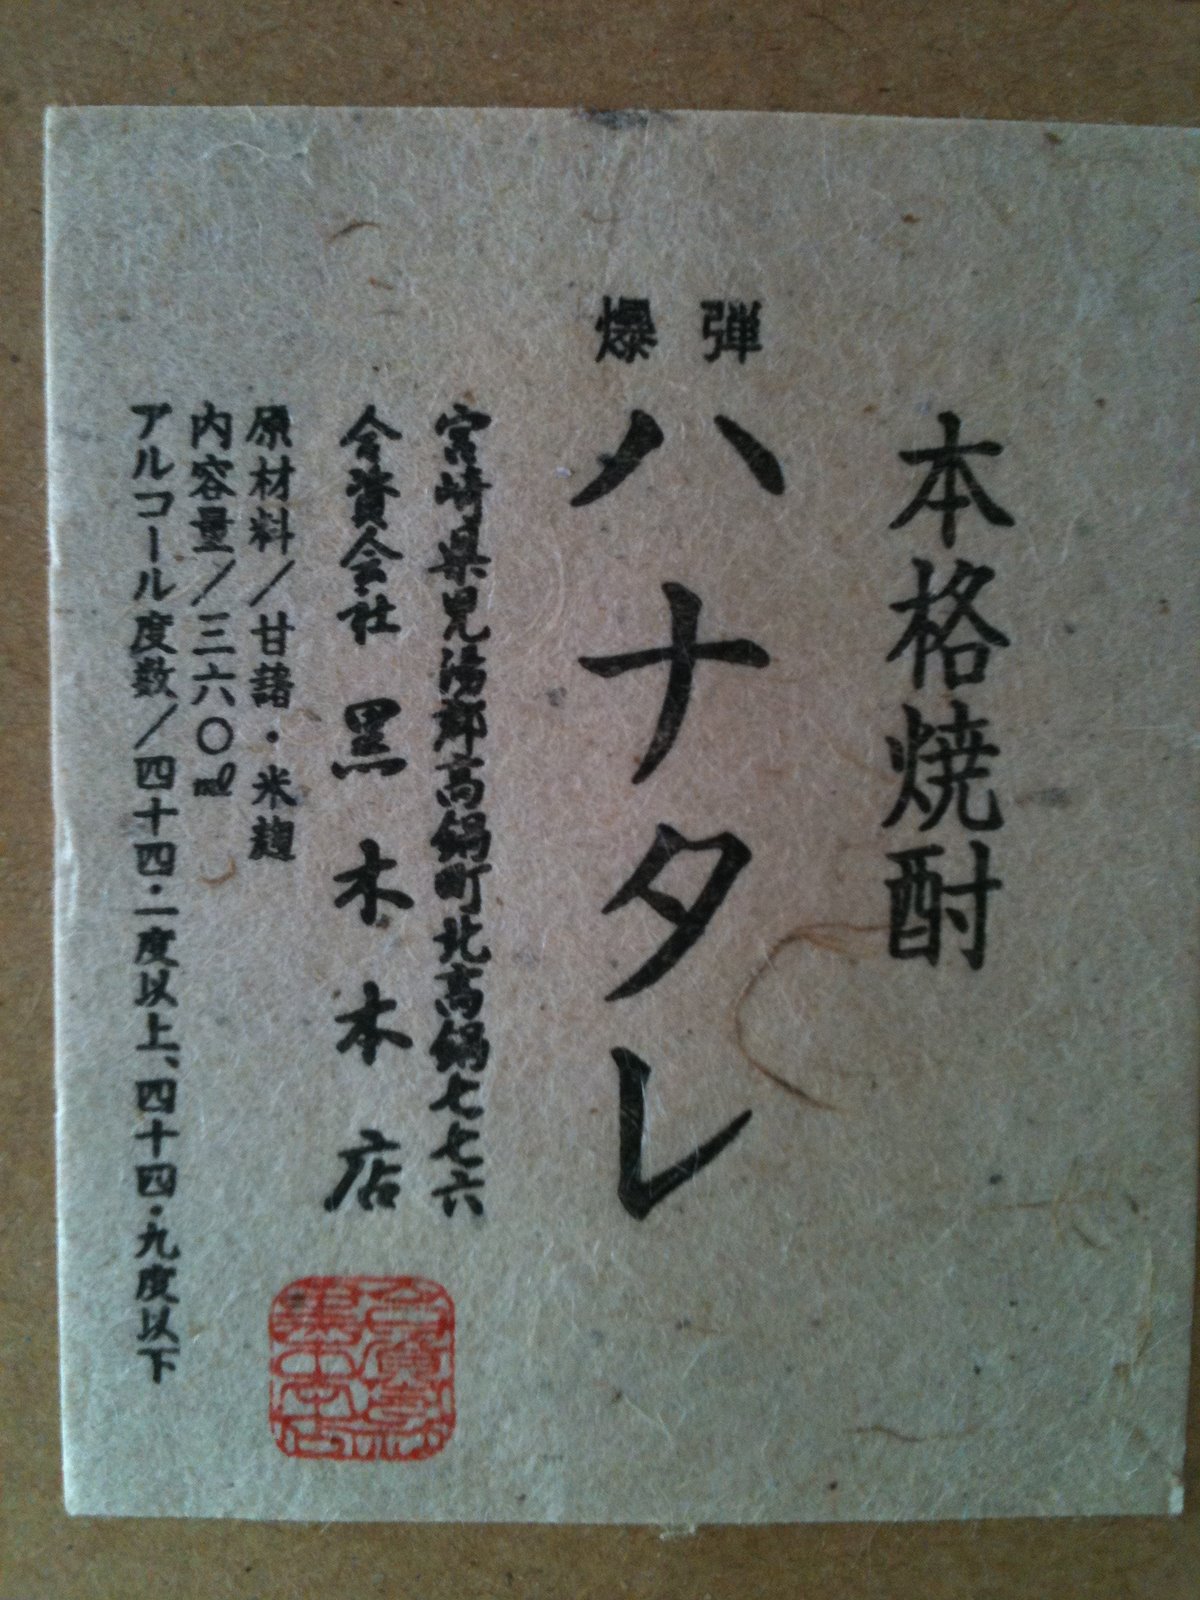 本格焼酎
爆弾
ハナタレ
宮崎県児湯郡高鍋町北高鍋七七六
合資会社 黒木本店
原材料/甘藷・米麹
内容量/三六〇ml
アルコール度数/四十四・一度以上、四十四・九度以下